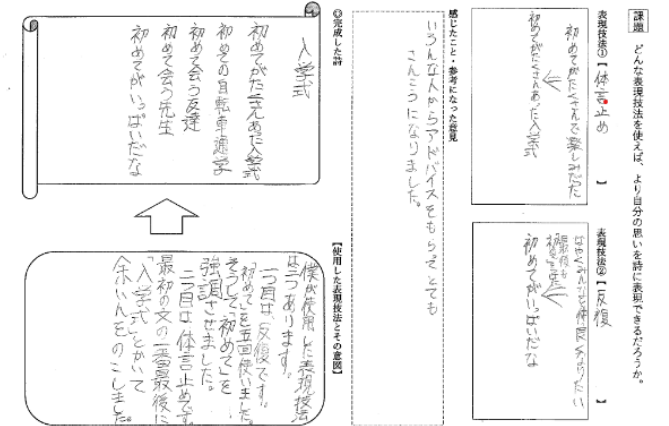 課題
どんな表現技法を使えば、より自分の思いを詩に表現できるだろうか。
表現技法①【体言止め】
初めてがたくさんで楽しみだった
初めてがたくさんあった入学式
表現技法②【反復】
はやくみんなと仲良くなりたい
初めてがいっぱいだな
感じたこと・参考になった意見
いろんな人からアドバイスをもらってとても
さんこうになりました。
◎完成した詩
入学式
初めてがたくさんあった入学式
初めての自転車通学
初めて会う友達
初めて会う先生
初めてがいっぱいだな
【使用した表現技法とその意図】
僕が使用した表現技法
は二つあります。
一つ目は、反復です。
「初めて」を五回使いました。
そうして「初めて」を
強調させました。
二つ目は、体言止めです。
最初の文の一番最後に
「入学式」とかいて
余いんをのこしました。